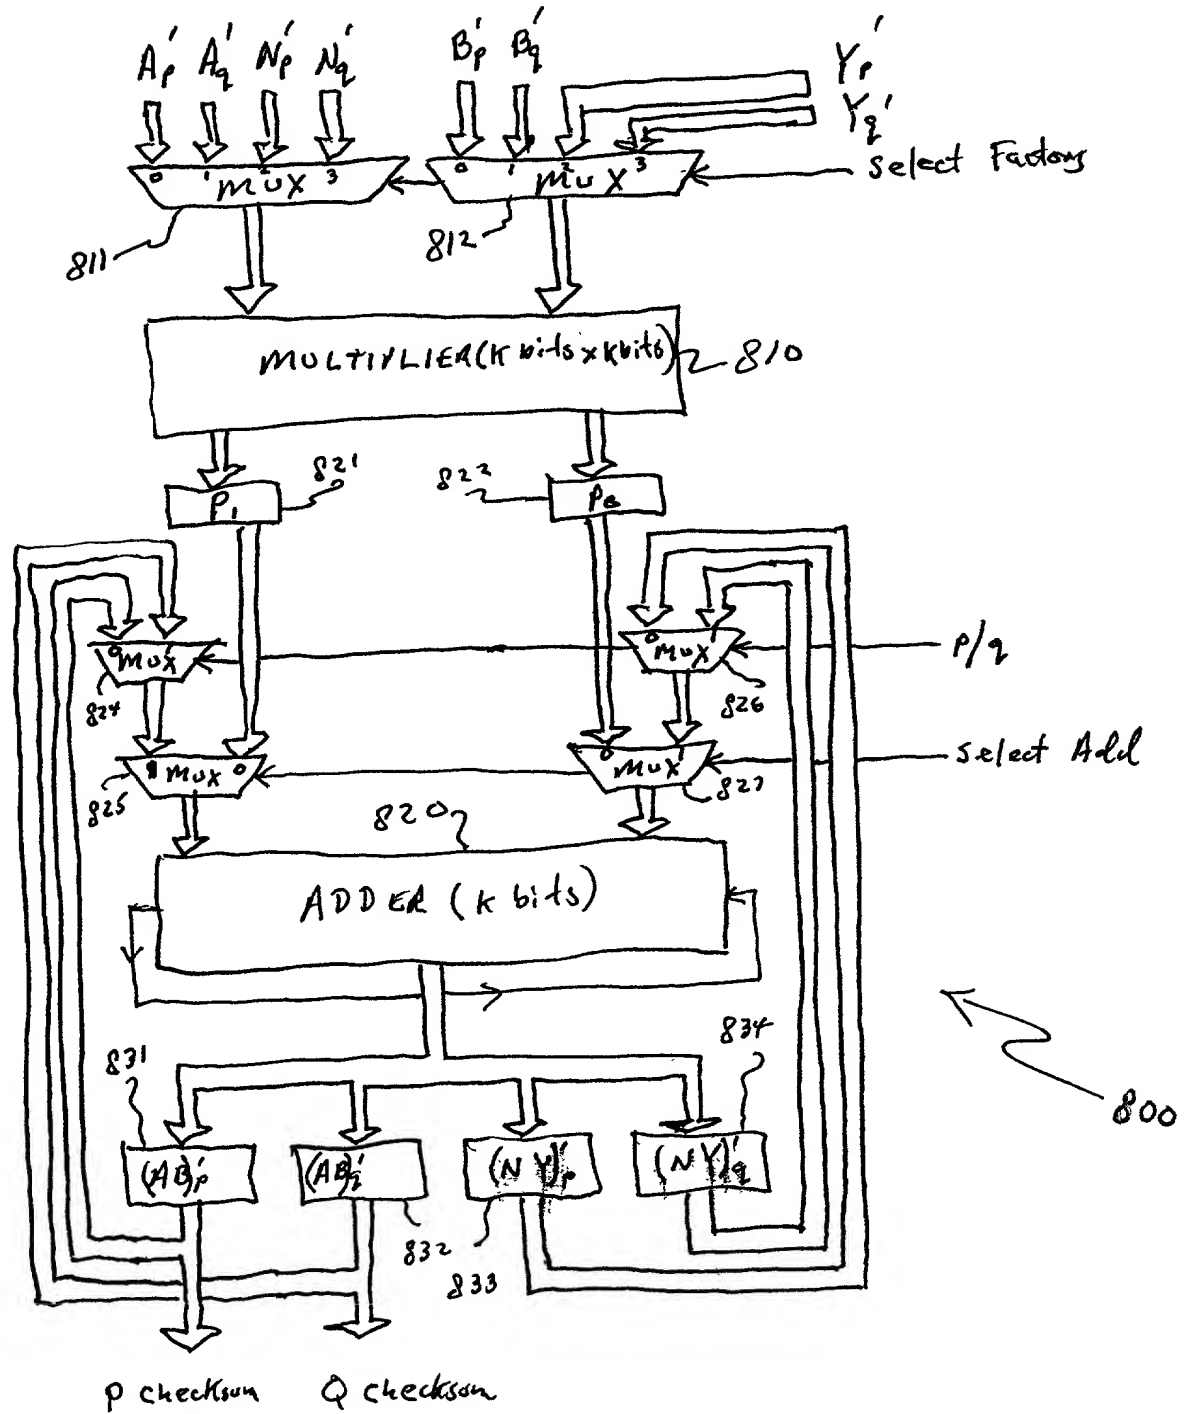 Ap' Aq' Np' Nq' Bp' Bq' Yp'
Yq'
0 1 2 3 MUX
0 1 2 3 MUX
Select Factors
811
812
MULTIPLIER (K bits x K bits)
810
P1
821
822
P0
0 MUX 1
824
0 MUX 1
826
P/q
1 MUX 0
825
0 MUX 1
827
Select Add
820
ADDER (K bits)
831
834
800
(AB)p'
(AB)q'
(NY)p'
(NY)q'
832
833
P checksum
Q checksum